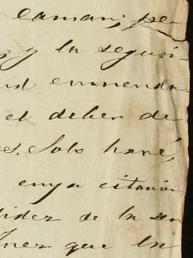 caman; pe-
y la seguri
ud enmenda
el deber de
s. Solo haré,
cuya citación
idez de la sen
Inez que la